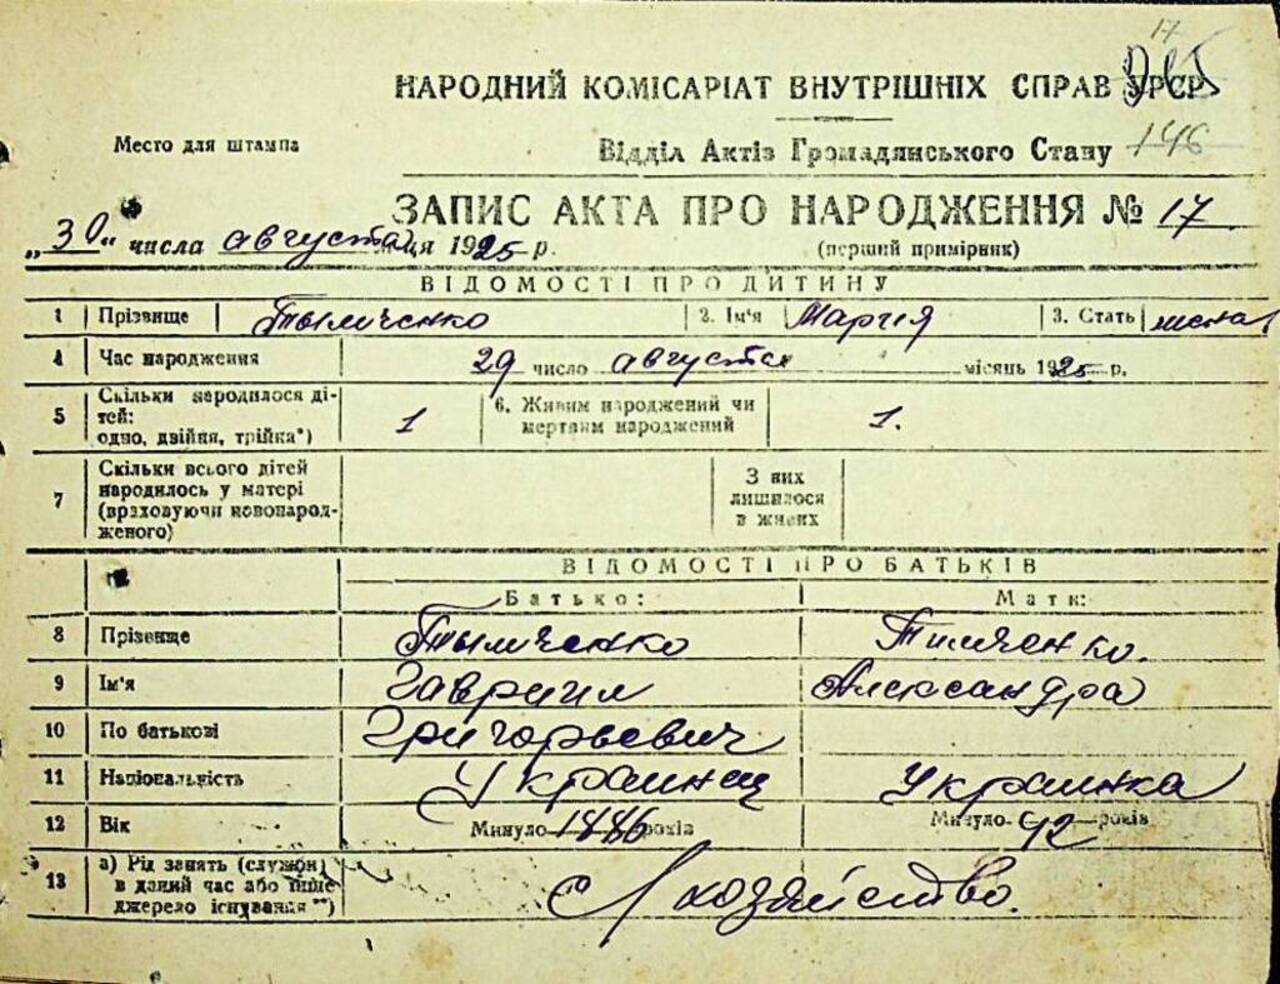 17
НАРОДНИЙ КОМІСАРІАТ ВНУТРІШНІХ СПРАВ УРСР
Место для штампа
Відділ Актів Громадянського Стану 146
ЗАПИС АКТА ПРО НАРОДЖЕННЯ № 17
„30“ числа августа ця 1925 р.
(перший примірник)
ВІДОМОСТІ ПРО ДИТИНУ
1 Прізвище Тымченко 2. Ім'я Мария 3. Стать женск
4 Час народження 29 число августа місяць 1925 р.
5 Скільки народилося ді-
тей:
одно, двійня, трійка*) 1 6. Живим народжений чи
мертвим народжений 1.
7 Скільки всього дітей
народилось у матері
(враховуючи новонарод-
женого) З них
лишилося
в живих
ВІДОМОСТІ ПРО БАТЬКІВ
Батько: Мати:
8 Прізвище Тымченко Тимченко.
9 Ім'я Гавриил Александра
10 По батькові Григорьевич
11 Національність Украинец Украинка
12 Вік Минуло 1886 років Минуло 42 років
13 а) Рід занять (служби)
в даний час або інше
джерело існування**) С/хозяйство.